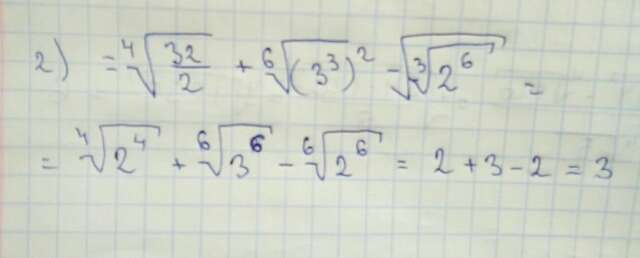 2) = ⁴√(32/2) + ⁶√(3³)² - √(³√2⁶) =
= ⁴√2⁴ + ⁶√3⁶ - ⁶√2⁶ = 2 + 3 - 2 = 3